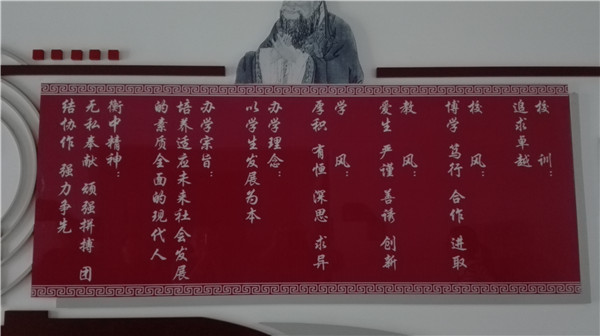 校 训：
追求卓越
校 风：
博学 笃行 合作 进取
教 风：
爱生 严谨 善诱 创新
学 风：
厚积 有恒 深思 求异
办学理念：
以学生发展为本
办学宗旨：
培养适应未来社会发展
的素质全面的现代人
衡中精神：
无私奉献 顽强拼搏 团
结协作 强力争先